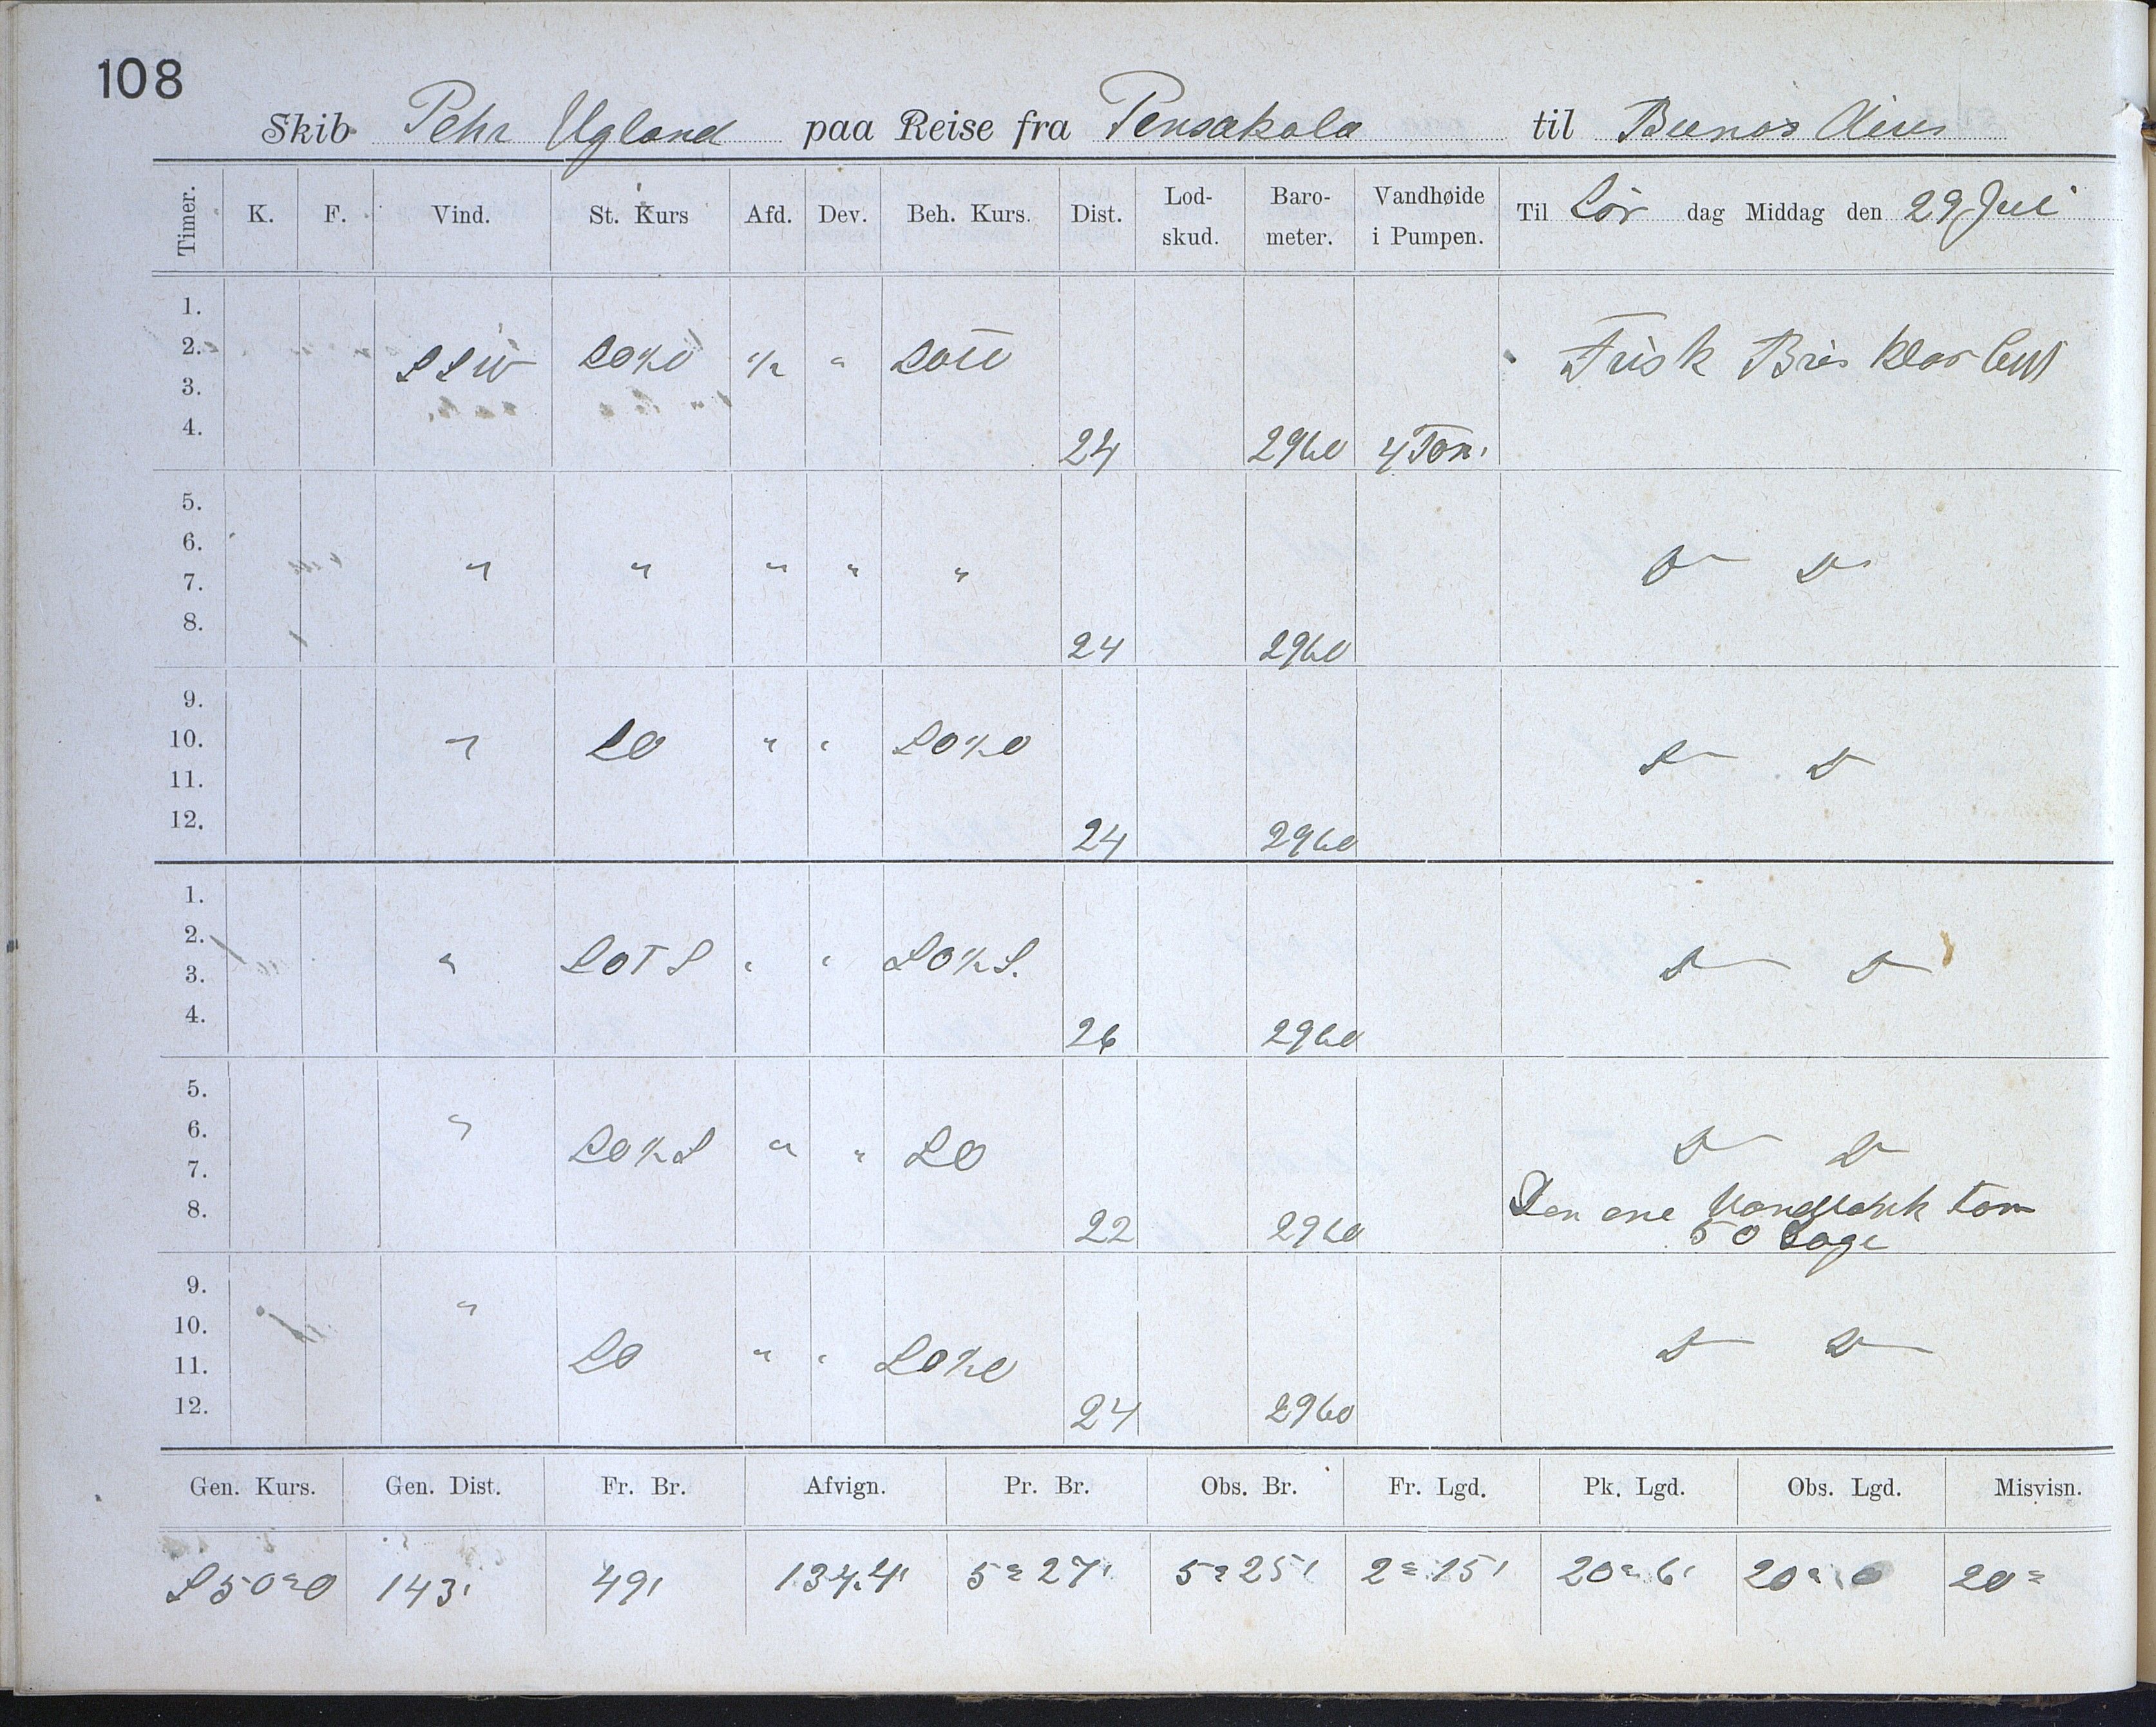 108
Skib Pehr Ugland paa Reise fra Pensakola til Buenos Aires
Timer. K. F. Vind. St. Kurs Afd. Dev. Beh. Kurs. Dist. Lod-skud. Baro-meter. Vandhøide i Pumpen. Til Lør dag Middag den 29 Juli
1.
2. SSW SO½O ½ " SOTO Frisk Bris klar luft
3.
4. 24 2960 4 Tom.
5.
6.
7. " " " " " D D
8. 24 2960
9.
10. " SO " " SO½O D D
11.
12. 24 2960
1.
2.
3. " SOTS " " SO½S. D D
4. 26 2960
5.
6. " SO½S " " SO D D
7.
8. 22 2960 Den ene Vandtank tom
50 Dage
9.
10. "
11. SO " " SO½O D D
12. 24 2960
Gen. Kurs. Gen. Dist. Fr. Br. Afvign. Pr. Br. Obs. Br. Fr. Lgd. Pk. Lgd. Obs. Lgd. Misvisn.
S50°O 143' 49' 134.4' 5° 27' 5° 25' 2° 15' 20° 6' 20° 20°